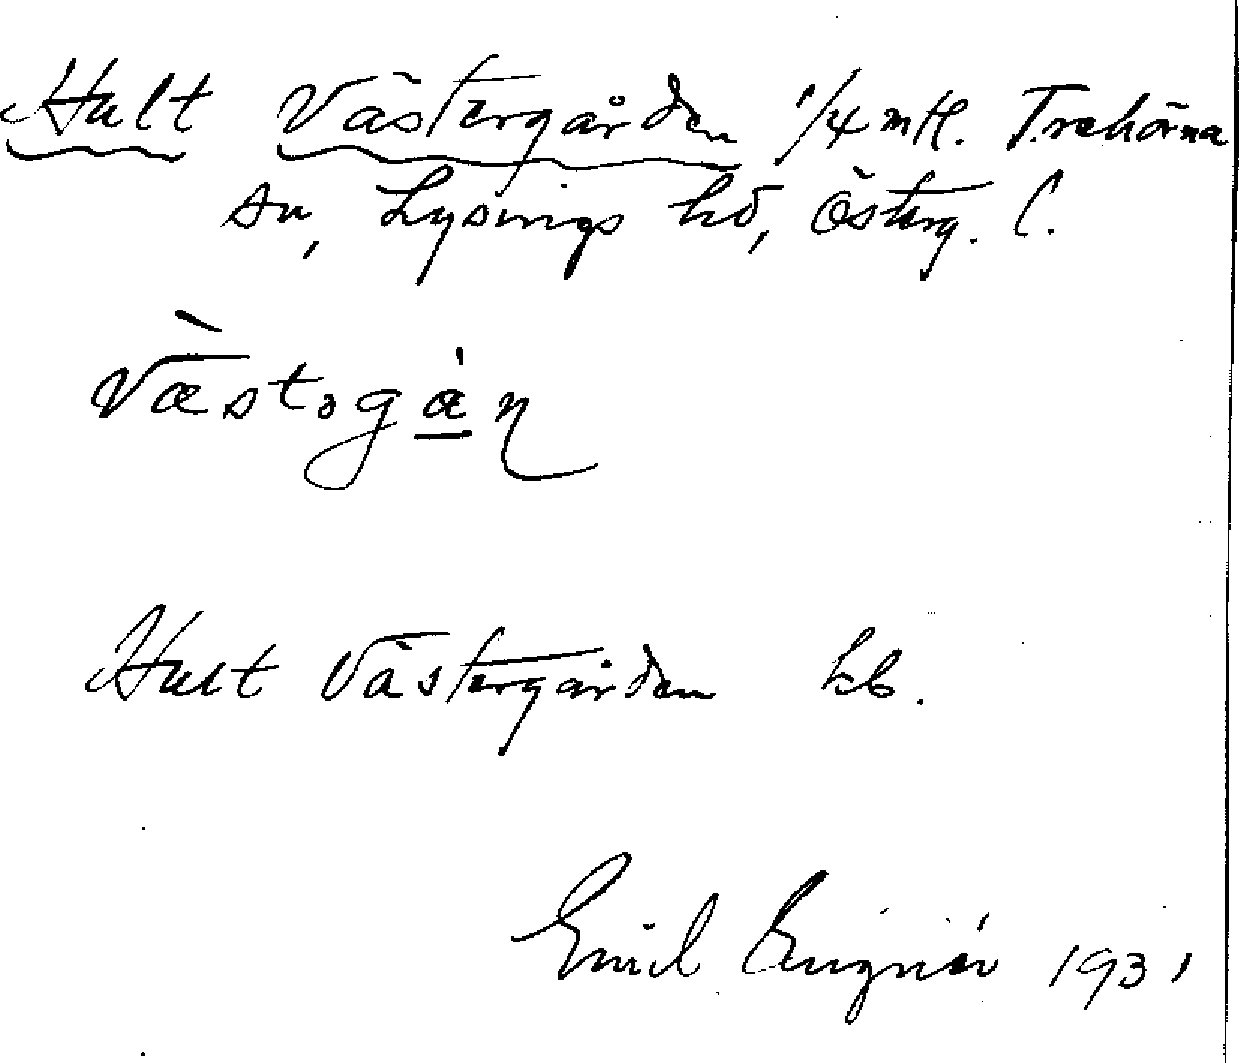 Hult Västergården 1/4 mtl. Trehörna
sn, Lysings hd, Österg. l.
Hult Västergården kb.
Emil 1931